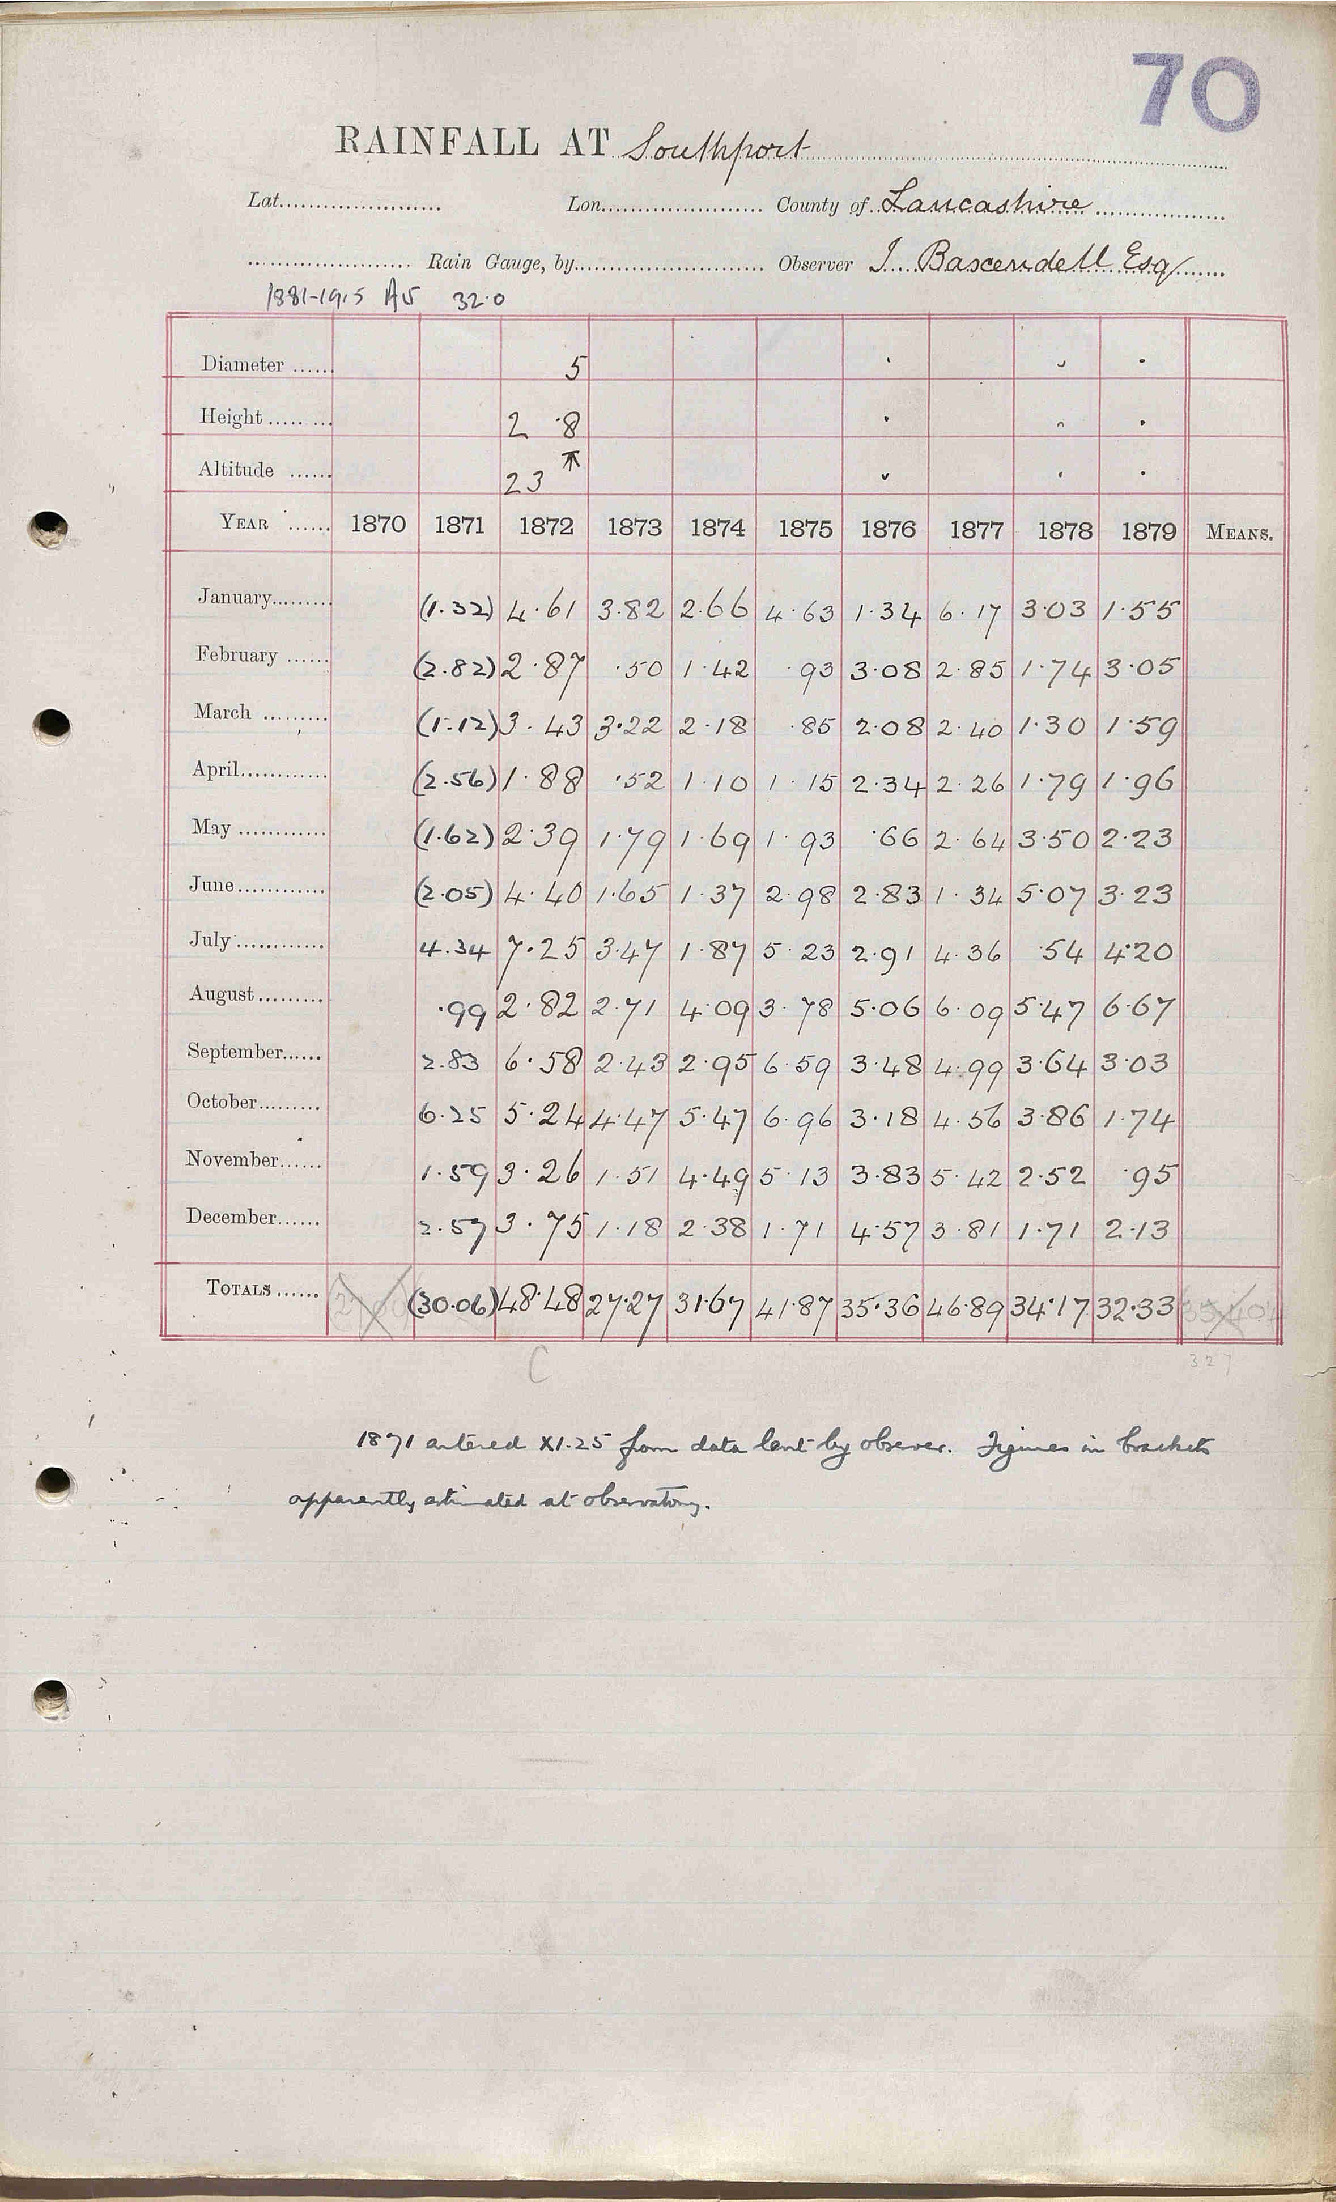 70
RAINFALL AT Southport
Lat. Lon. County of Lancashire
Rain Gauge, by Observer J. Baxendell Esq
1881-1915 Av 32.0
Diameter 5
Height 2 .8
Altitude 23
YEAR 1870 1871 1872 1873 1874 1875 1876 1877 1878 1879 MEANS.
January (1.32) 4.61 3.82 2.66 4.63 1.34 6.17 3.03 1.55
February (2.82) 2.87 .50 1.42 .93 3.08 2.85 1.74 3.05
March (1.12) 3.43 3.22 2.18 .85 2.08 2.40 1.30 1.59
April (2.56) 1.88 .52 1.10 1.15 2.34 2.26 1.79 1.96
May (1.62) 2.39 1.79 1.69 1.93 .66 2.64 3.50 2.23
June (2.05) 4.40 1.65 1.37 2.98 2.83 1.34 5.07 3.23
July 4.34 7.25 3.47 1.87 5.23 2.91 4.36 .54 4.20
August .99 2.82 2.71 4.09 3.78 5.06 6.09 5.47 6.67
September 2.83 6.58 2.43 2.95 6.59 3.48 4.99 3.64 3.03
October 6.25 5.24 4.47 5.47 6.96 3.18 4.56 3.86 1.74
November 1.59 3.26 1.51 4.49 5.13 3.83 5.42 2.52 .95
December 2.57 3.75 1.18 2.38 1.71 4.57 3.81 1.71 2.13
TOTALS (30.06) 48.48 27.27 31.67 41.87 35.36 46.89 34.17 32.33
C 327
1871 entered X1.25 from data lent by observer. Figures in brackets
apparently estimated at observatory.